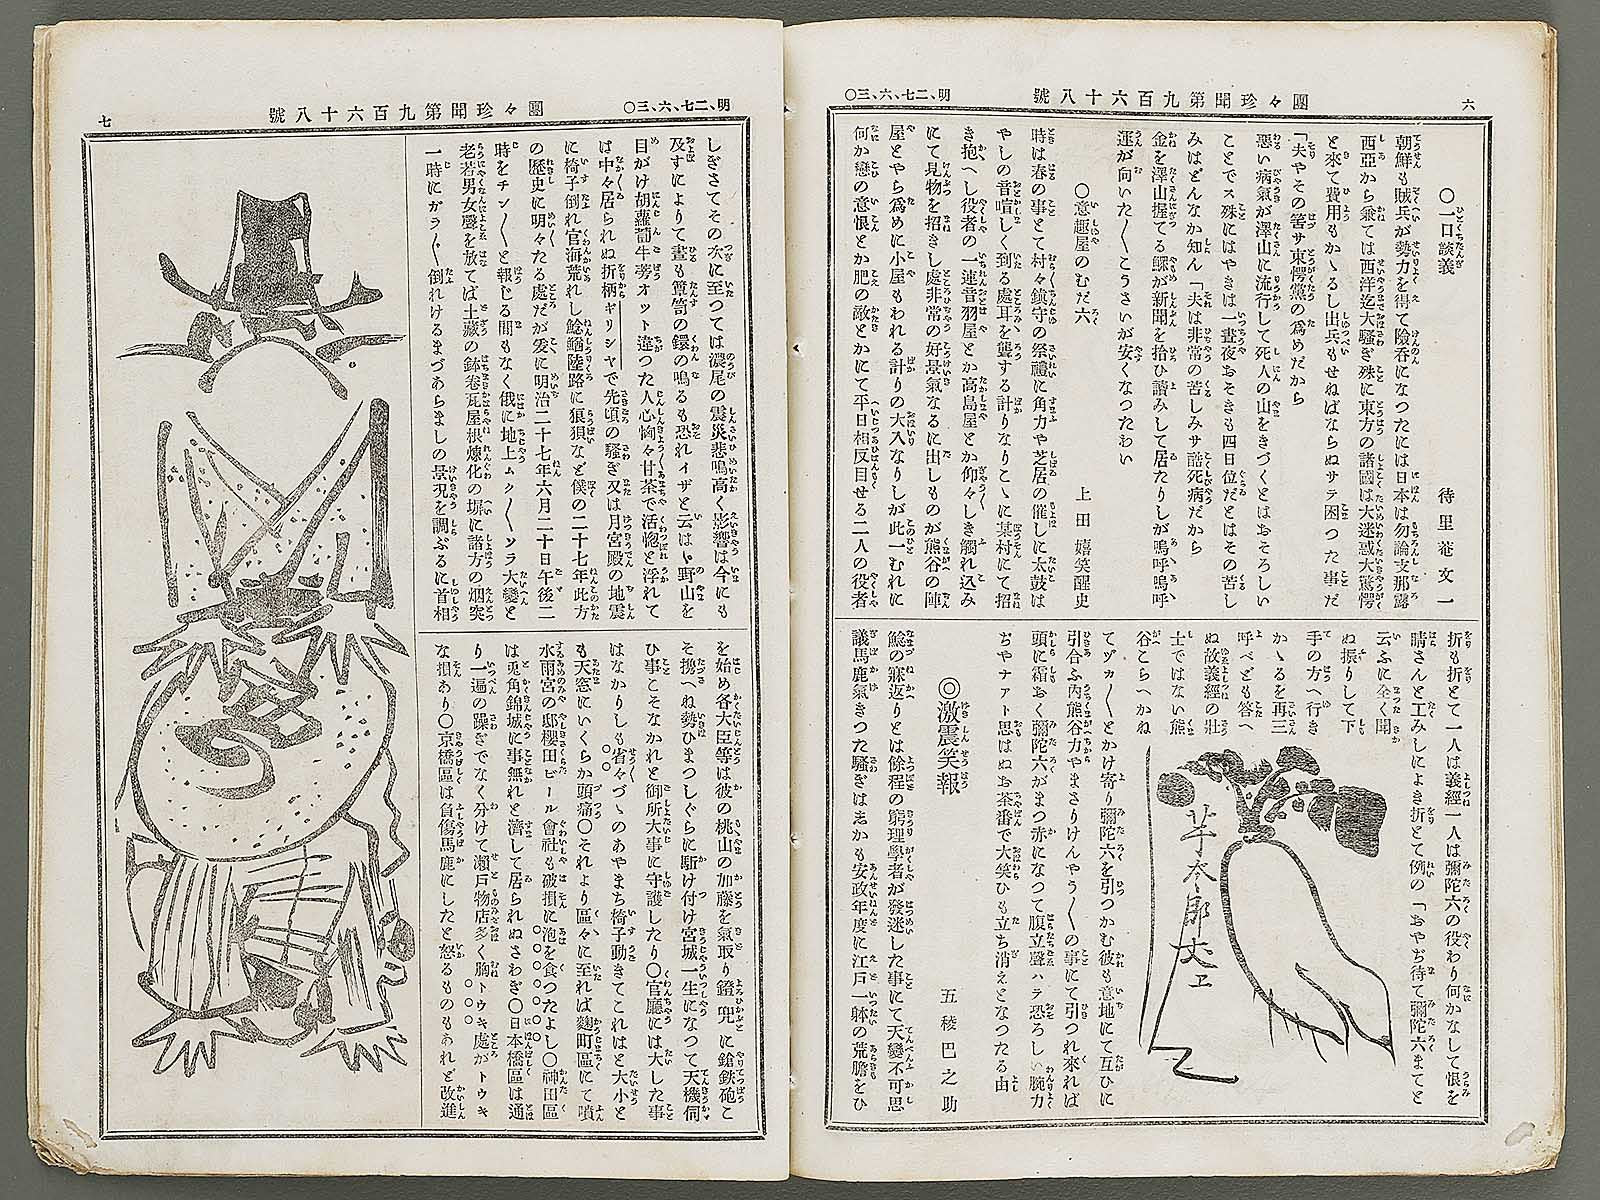 六
團々珍聞第九百六十八號
明、二七、六、三〇
〇一口談義
待里菴文一
朝鮮も賊兵が勢力を得て險呑になつたには日本は勿論支那露
西亞から兼ては西洋迄大騷ぎ殊に東方の諸國は大迷惑大驚愕
と來て費用もかゝるし出兵もせねばならぬサテ困つた事だ
「夫やその筈サ東愕黨の爲めだから
惡い病氣が澤山に流行して死人の山をきづくとはおそろしい
ことでス殊にはやきは一晝夜おそきも四日位だとはその苦し
みはどんなか知ん「夫は非常の苦しみサ酷死病だから
金を澤山握てる鰥が新聞を拾ひ讀みして居たりしが嗚呼嗚呼
運が向いた〱こうさいが安くなつたわい
〇意趣屋のむだ六
上田嬉笑醒史
時は春の事とて村々鎭守の祭禮に角力や芝居の催しに太鼓は
やしの音喧しく到る處耳を聾する計りなりこゝに某村にて招
き抱へし役者の一連音羽屋とか高島屋とか仰々しき觸れ込み
にて見物を招きし處非常の好景氣なるに出しものが熊谷の陣
屋とやら爲めに小屋もわれる計りの大入なりしが此一むれに
何か戀の意恨とか肥の敵とかにて平日相反目せる二人の役者
折も折とて一人は義經一人は彌陀六の役わり何かなして恨を
睛さんと工みしによき折とて例の「おやぢ待て彌陀六まてと
云ふに全く聞
ぬ振りして下
手の方へ行き
かゝるを再三
呼べども答へ
ぬ故義經の壯
士ではない熊
谷こらへかね
てヅカ〱とかけ寄り彌陀六を引つかむ彼も意地にて互ひに
引合ふ内熊谷力やまさりけんやう〱の事にて引つれ來れば
頭に霜おく彌陀六がまつ赤になつて腹立聲ハラ恐ろしい腕力
ぢやナァト思はぬお茶番で大笑ひも立ち消えとなつたる由
◎激震笑報
五稜巴之助
鯰の寐返りとは餘程の窮理學者が發迷した事にて天變不可思
議馬鹿氣きつた騷ぎは志かも安政年度に江戸一躰の荒膽をひ
七
團々珍聞第九百六十八號
明、二七、六、三〇
しぎさてその次に至つては濃尾の震災悲鳴高く影響は今にも
及すによりて晝も簞笥の鐶の鳴るも恐れイザと云はゞ野山を
目がけ胡蘿蔔牛蒡オット違つた人心恟々廿茶で活惚と浮れて
は中々居られぬ折柄ギリシヤで先頃の騷ぎ又は月宮殿の地震
に椅子倒れ官海荒れし鯰鰌陸路に狼狽など僕の二十七年此方
の歷史に明々たる處だが爰に明治二十七年六月二十日午後二
時をチン〱と報じる間もなく俄に地上ムク〱ソラ大變と
老若男女聲を放てば土藏の鉢卷瓦屋根煉化の塀に諸方の烟突
一時にガラ〲倒れけるまづあらましの景况を調ぶるに首相
を始め各大臣等は彼の桃山の加藤を氣取り鐙兜に鎗鉄砲こ
そ携へね勢ひまつしぐらに駈け付け宮城一生になつて天機伺
ひ事こそなかれと御所大事に守護したり〇官廳には大した事
はなかりしも省々づゝのあやまち椅子動きてこれはと大小と
も天窓にいくらか頭痛〇それより區々に至れば麴町區にて噴
水雨宮の邸櫻田ビール會社も破損に泡を食つたよし〇神田區
は兎角錦城に事無れと濟して居られぬさわぎ〇日本橋區は通
り一遍の躁ぎでなく分けて瀨戸物店多く胸トウキ處がトウキ
な損あり〇京橋區は負傷馬鹿にしたと怒るものもあれど改進